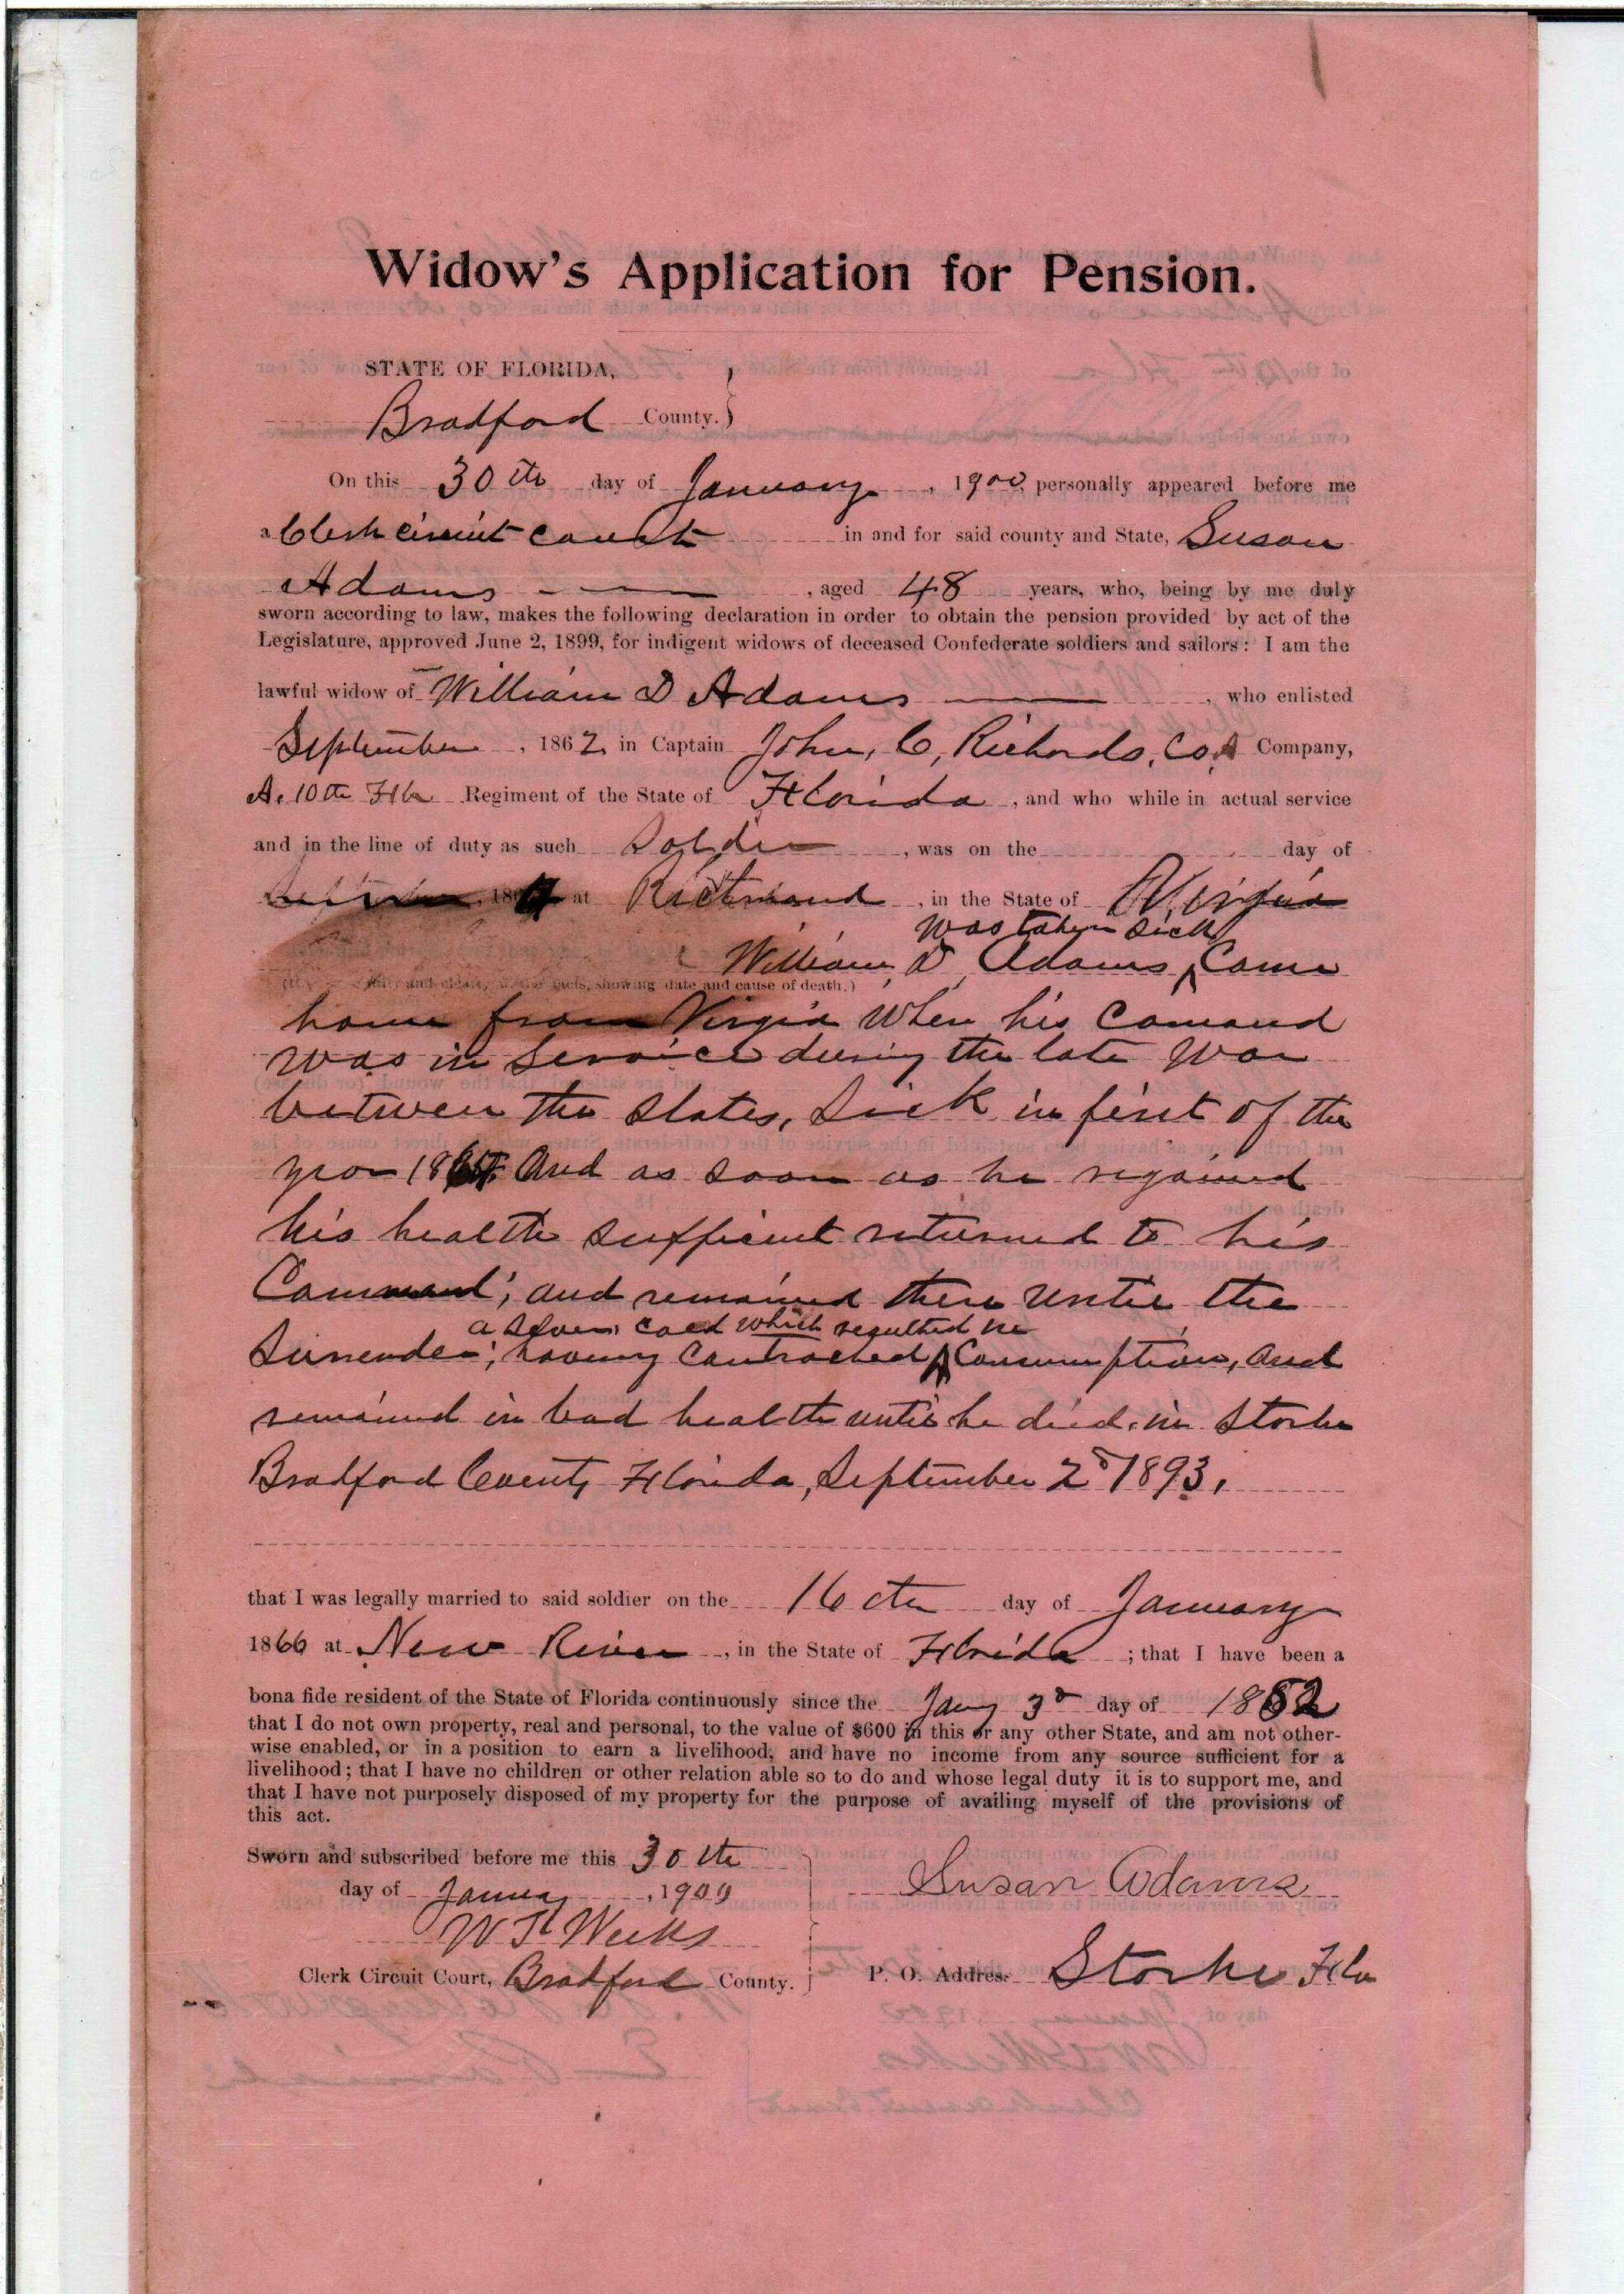 Widow's Application for Pension.
STATE OF FLORIDA,
Bradford County.
On this 30th day of January, 1900, personally appeared before me
a Clerk circuit court in and for said county and State, Susan
Adams, aged 48 years, who, being by me duly
sworn according to law, makes the following declaration in order to obtain the pension provided by act of the
Legislature, approved June 2, 1899, for indigent widows of deceased Confederate soldiers and sailors: I am the
lawful widow of William D Adams, who enlisted
September, 1862 in Captain John, C, Richards, Co, A Company,
A. 10th Fla Regiment of the State of Florida, and who while in actual service
and in the line of duty as such Soldier, was on the day of
186 at Richmond, in the State of Virginia
was taken sick
William, D, Adams, Came
facts, showing date and cause of death.)
home from Virgia When his Comand
was in Service during the late War
between the States, Sick in first of the
year 18 And as soon as he regained
his health sufficient returned to his
Command; and remained there until the
a sever cold which resulted in
Surrender; having Contracted Consumption, and
remained in bad health until he died in Starke
Bradford County Florida, September 2d 1893,
that I was legally married to said soldier on the 16th day of January
1866 at New River, in the State of Florida; that I have been a
bona fide resident of the State of Florida continuously since the Jany 3d day of 1852
that I do not own property, real and personal, to the value of $600 in this or any other State, and am not other-
wise enabled, or in a position to earn a livelihood, and have no income from any source sufficient for a
livelihood; that I have no children or other relation able so to do and whose legal duty it is to support me, and
that I have not purposely disposed of my property for the purpose of availing myself of the provisions of
this act.
Sworn and subscribed before me this 30th
day of January, 1900
Susan Adams
Weeks
Clerk Circuit Court, Bradford County.
P. O. Address Starke Fla